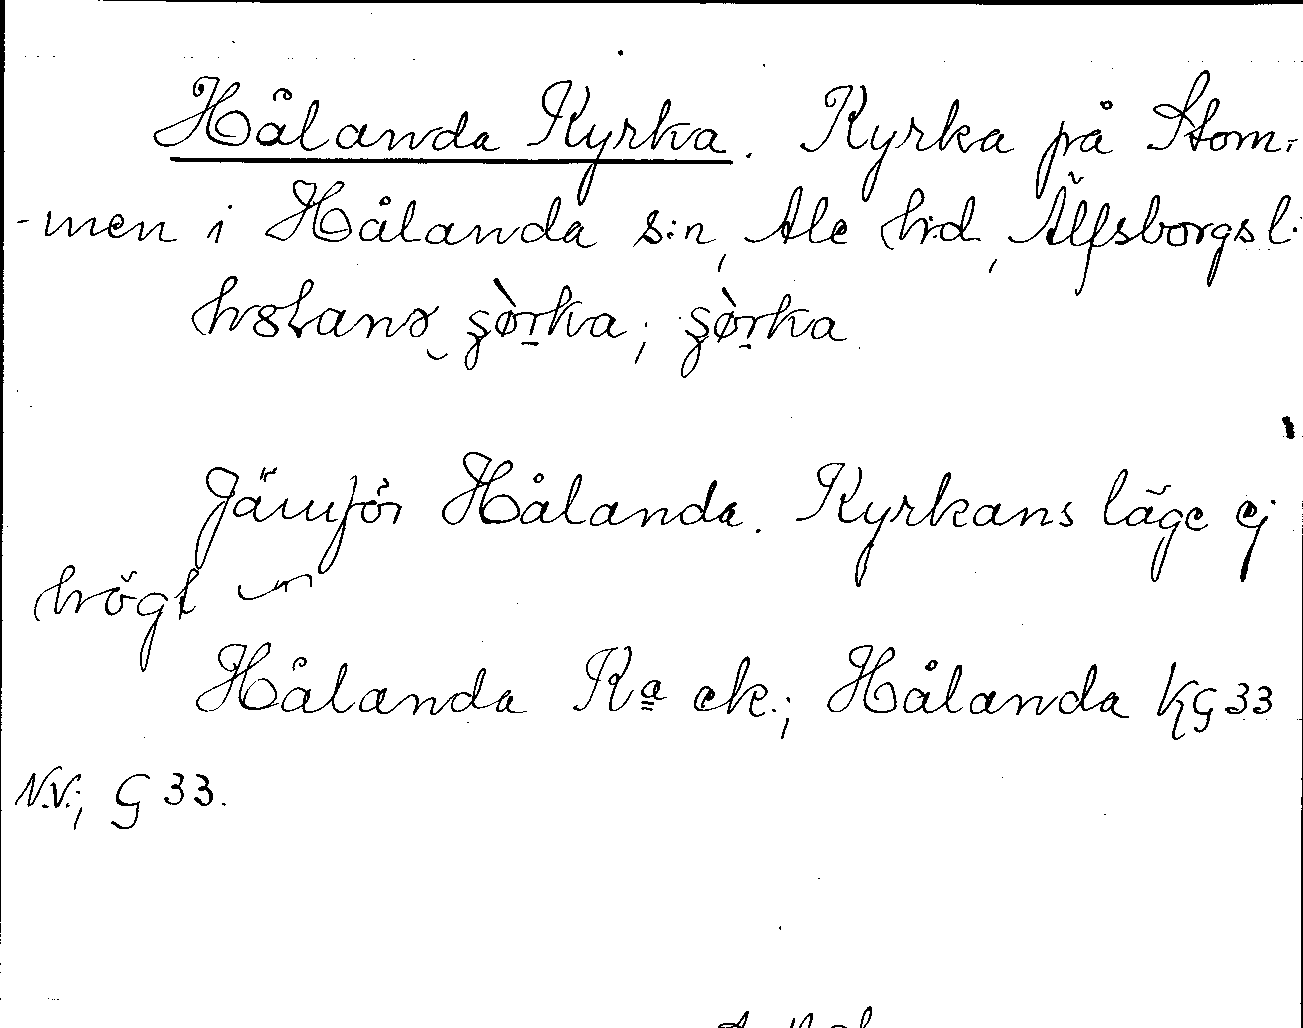 Hålanda Kyrka. Kyrka på Stom-
-men i Hålanda s:n, Ale h:d, Älfsborgs l.
Jämför Hålanda. Kyrkans läge ej
högt
Hålanda Ka ek.; Hålanda KG33
N.V.; G 33.